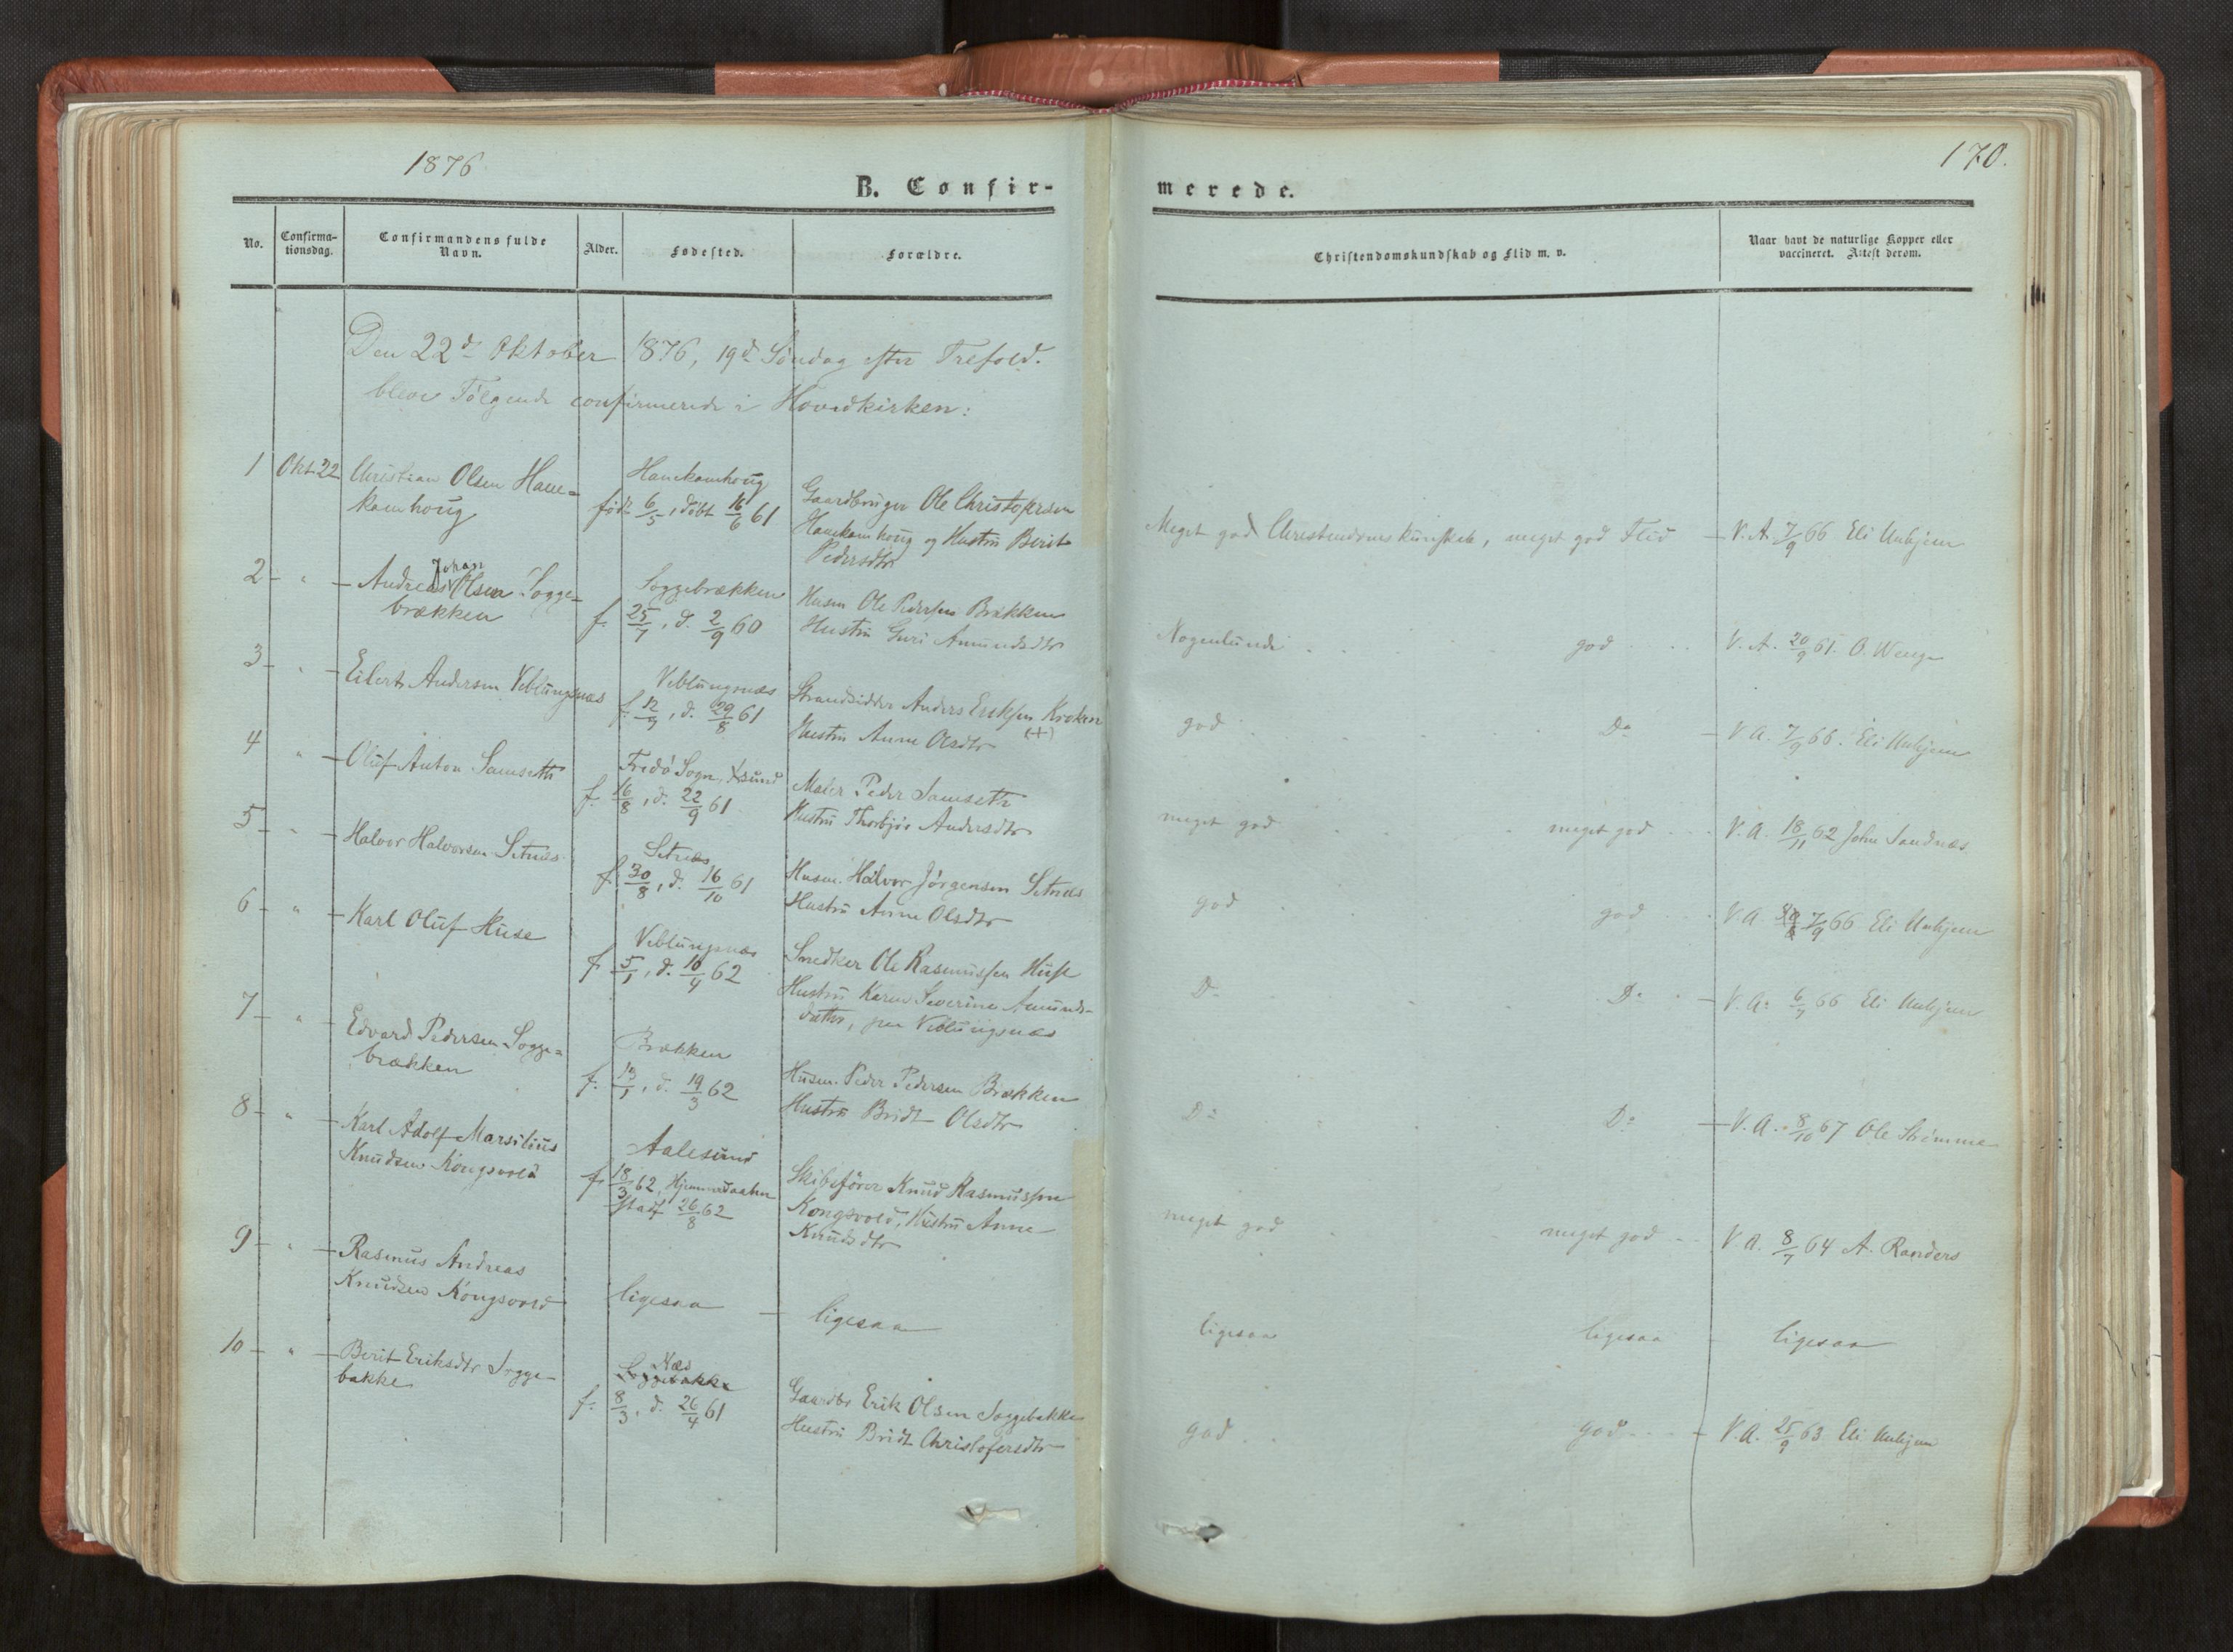 1876
170.
B. Confir-
merede.
No.
Confirma-
tionsdag.
Confirmandens fulde
Navn.
Alder.
Fødested.
Forældre.
Christendomskundskab og Flid m. v.
Naar havt de naturlige Kopper eller
vaccineret. Attest derom.
Den 22d Oktober 1876, 19d Søndag efter Trefold.
bleve Følgende confirmerede i Hovedkirken:
1 Okt. 22 Christian Olsen Hane=
kamhoug
Hanekamhoug
født 6/5, døbt 16/6 61
Gaardbruger Ole Christofersen
Hanekamhoug og Hustru Berit
Pedersdtr
Meget god Christendomskundskab, meget god Flid
V. A. 7/9 66 Eli Unhjem
2 " Andreas Johan Olsen Sogge=
brækken
Soggebrækken
f. 25/7, d. 2/9 60
Husm Ole Pedersen Brækken
Hustru Guri Amundsdtr
Nogenlunde god
V. A. 20/9 61. O. Wenge
3 " Eilert Andersen Veblungsnæs
Veblungsnæs
f. 12/7, d. 29/8 61
Strandsidder Anders Eriksen Kroken
Hustru Anne Olsdtr (+)
god Do
V A. 7/9 66. Eli Unhjem
4 " Oluf Anton Samseth
Fredø Sogn, Xsund
f. 16/8, d. 22/9 61.
Maler Peder Samseth
Hustru Thorbjør Andersdtr
meget god meget god
V. A. 18/11 62 John Sandnæs
5 " Halvor Halvorsen Setnæs
Setnæs
f. 30/8, d. 16/10 61
Husm. Halvor Jørgensen Setnæs
Hustru Anne Olsdtr
god god
V. A. 7/9 66 Eli Unhjem
6 " Karl Oluf Huse
Veblungsnæs
f. 5/1, d. 10/4 62
Snedker Ole Rasmussen Huse
Hustru Karen Severine Amunds-
datter, paa Veblungsnæs
Do Do
V. A. 6/7 66 Eli Unhjem
7 " Edvard Pedersen Sogge=
brækken
Brækken
f. 13/1, d. 19/3 62
Husm. Peder Pedersen Brækken
Hustru Bridt Olsdtr
Do Do
V. A. 8/10 67 Ole Strimme
8 " Karl Adolf Marsilius
Knudsen Kongsvold
Aalesund
f. 18/3 62, Hjemmedøbt
Stadf 26/8 62
Skibsfører Knud Rasmussen
Kongsvold, Hustru Anne
Knudsdtr
meget god meget god
V. A. 8/7 64 A. Randers
9 " Rasmus Andreas
Knudsen Kongsvold
ligesaa ligesaa
ligesaa ligesaa ligesaa
10 " Berit Eriksdtr Sogge-
bakke
Næs
Soggebakke
f. 8/3, d. 26/4 61
Gaardbr Erik Olsen Soggebakke
Hustru Bridt Christofersdtr
god god
V. A. 25/9 63 Eli Unhjem